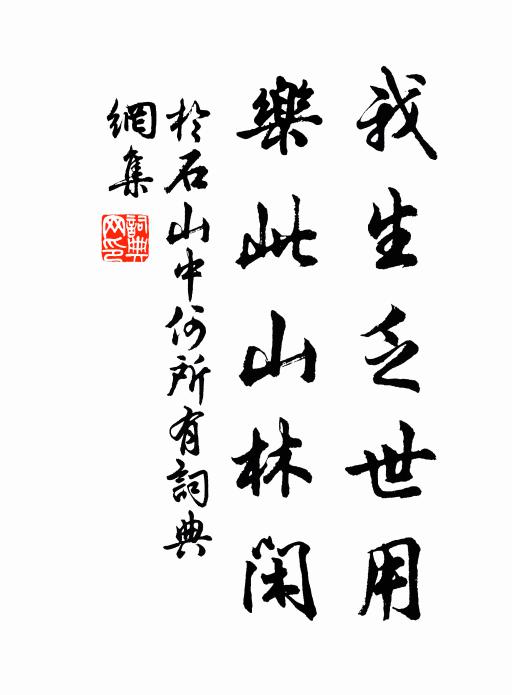 我生乏世用
樂此山林閑
於石山中何所有詞典
網集
詞典
网印